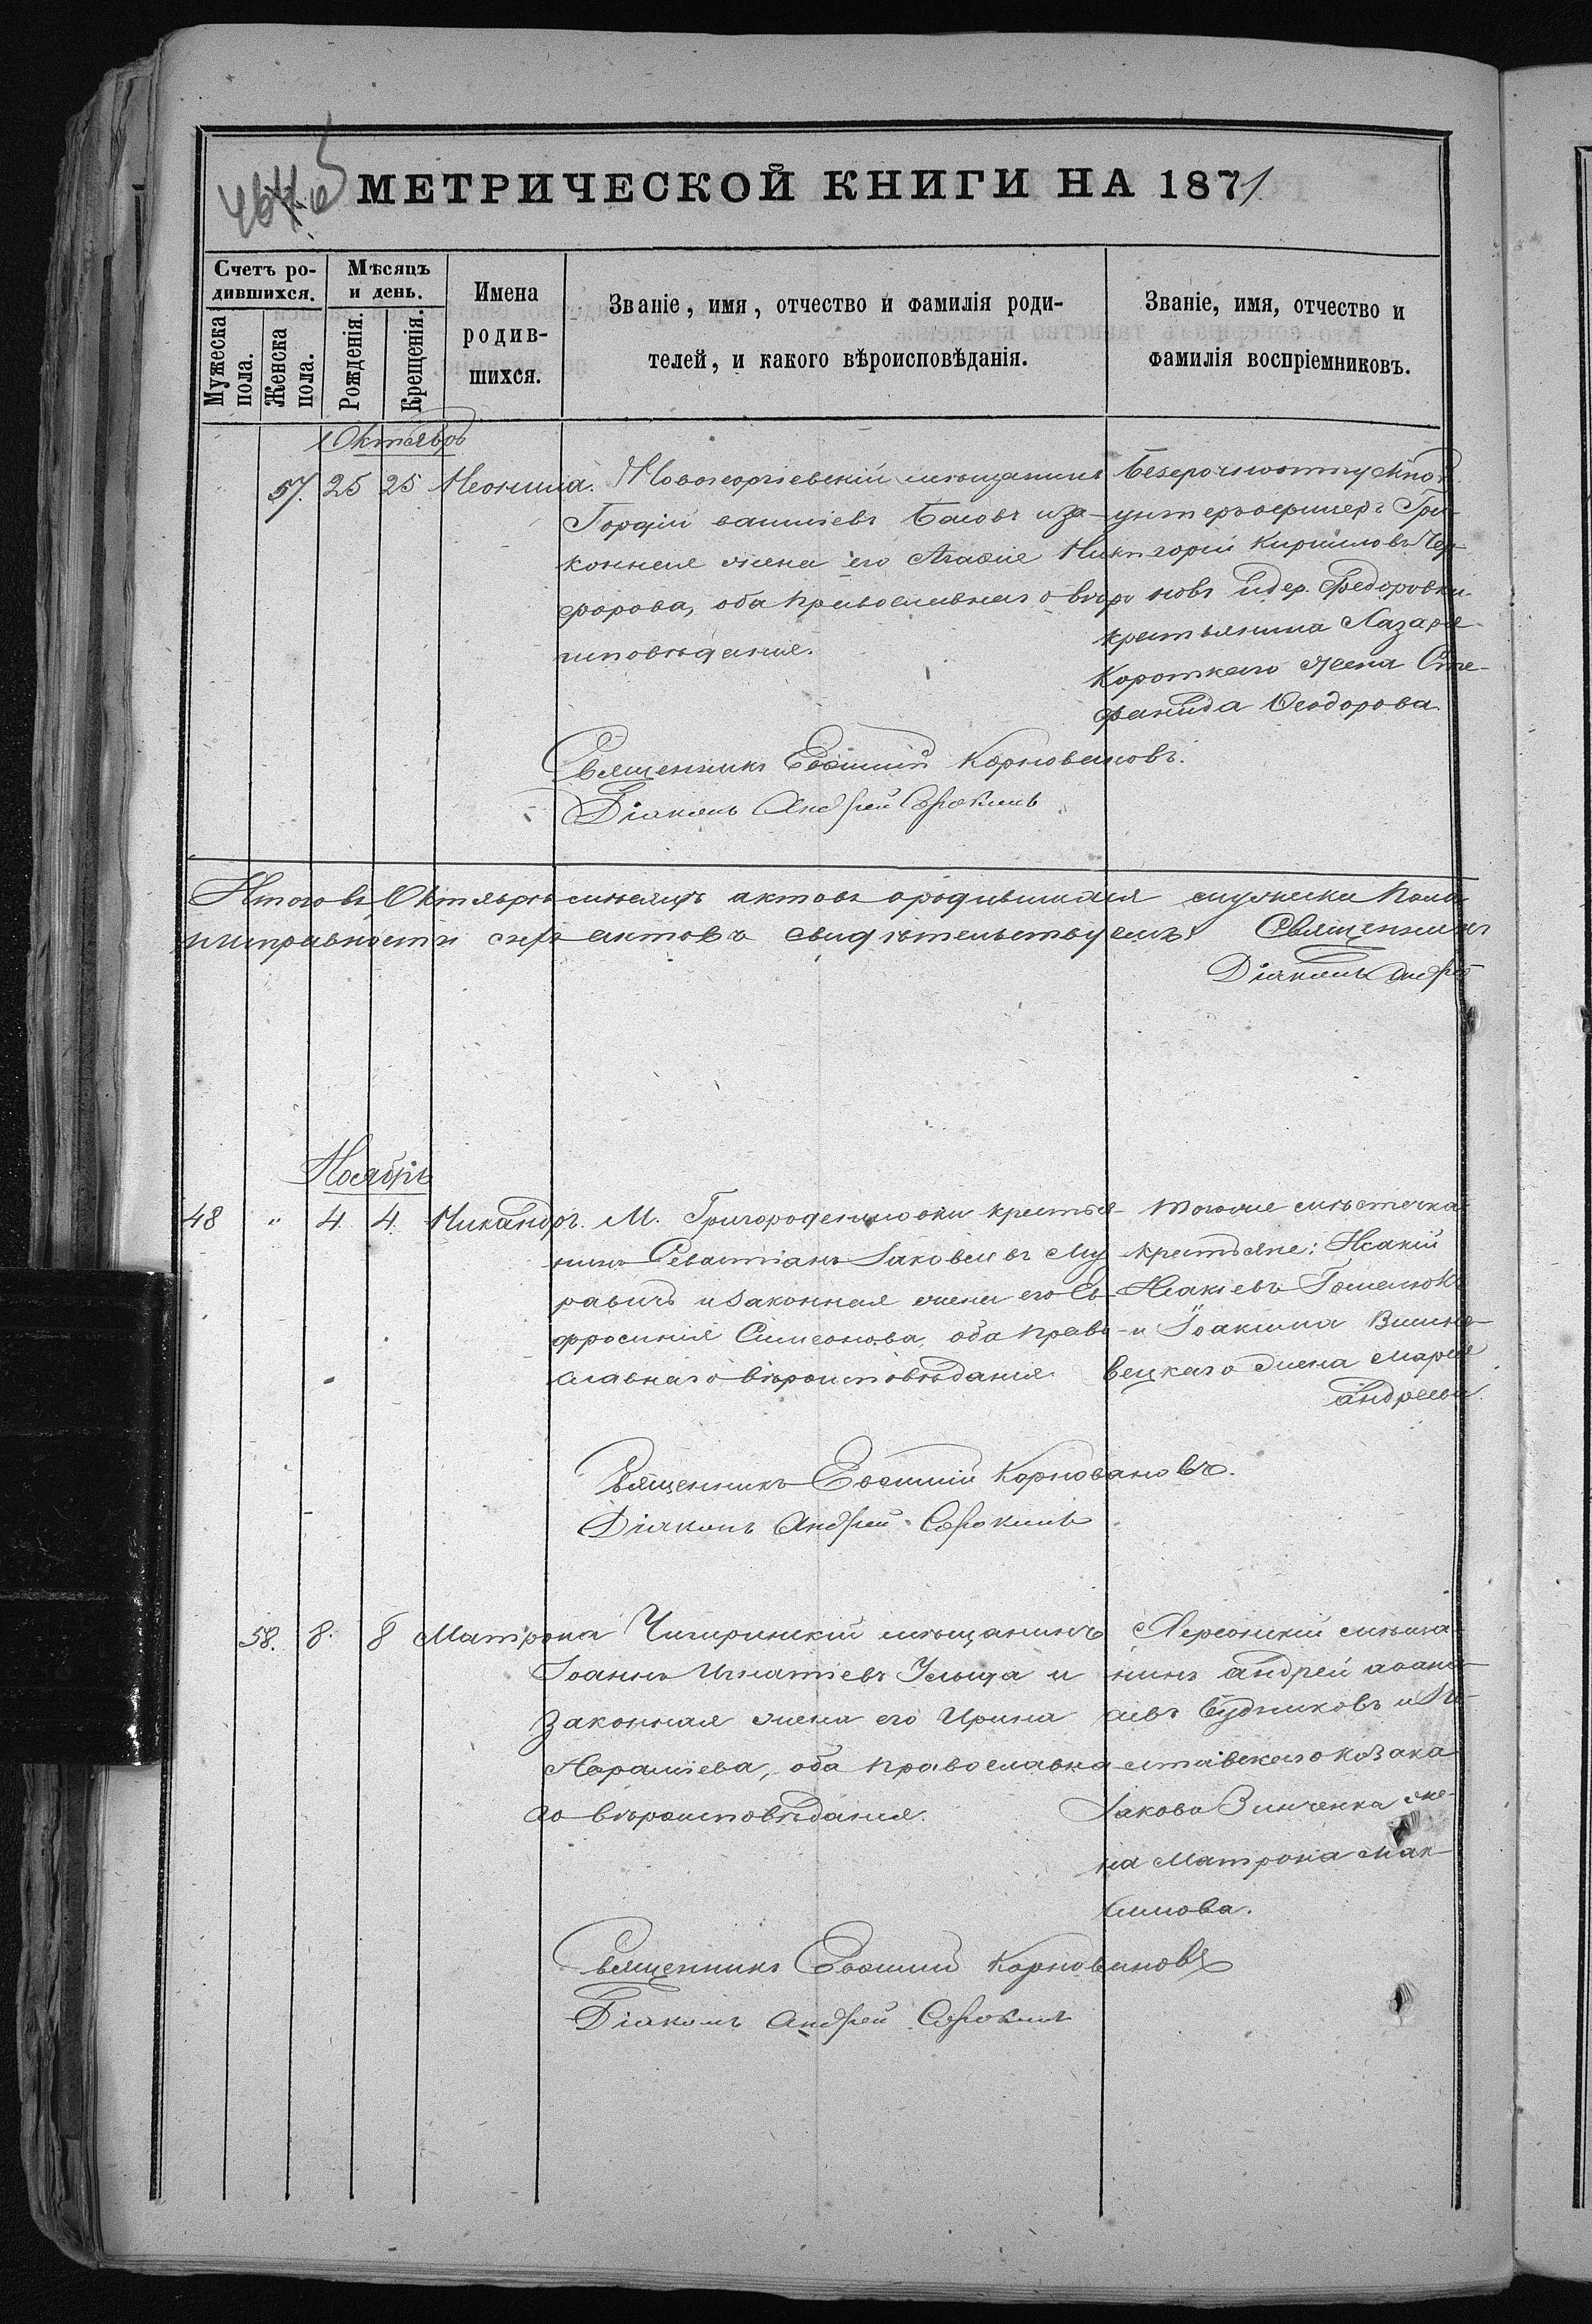 МЕТРИЧЕСКОЙ КНИГИ НА 1871
Счетъ ро-
дившихся.
Мужеска
пола.
Женска
пола.
Мѣсяцъ
и день.
Рожденія.
Крещенія.
Имена
родив-
шихся.
Званіе, имя, отчество и фамилія роди-
телей, и какого вѣроисповѣданія.
Званіе, имя, отчество и
фамилія воспріемниковъ.
Октябрь
57. 25 25 Неонила.
Новогеоргіевскій мѣщанинъ
Гордій Басовъ и за-
конная жена его Агафія Ники-
форова, оба православнаго вѣро
исповѣданія.
Безсрочноотпускной
унтеръ-офицеръ Гри-
горій Кириловъ Чер-
новъ и дер. Федоровки
крестьянина Лазаря
Короткаго жена Сте-
фанида Ѳеодорова.
Священникъ Евѳимій Корноваловъ.
Діаконъ Андрей Сорокинъ
Итого въ Октябрѣ мѣсяцѣ актовъ о родившихся мужеска пола
исправности сихъ актовъ свидѣтельствуемъ: Священникъ
Діаконъ Андрей
Ноябрь
48 " 4. 4. Никандръ.
М. Григороденисовки крестья-
нинъ Севастіанъ Іаковлевъ Му
равичъ и законная жена его Ев-
фросинія Симеонова, оба право-
славнаго вѣроисповѣданія
тогоже мѣстечка
крестьяне: Исакій
Исакіевъ
и Іоакима Вишне-
вецкаго жена Марія
Андреева.
Священникъ Евѳимій Корноваловъ.
Діаконъ Андрей Сорокинъ
58. 8. 8 Матрона
Чигиринскій мѣщанинъ
Іоаннъ Игнатіевъ и
законная жена его Ирина
оба православна
го вѣроисповѣданія.
Херсонскій мѣща-
нинъ Андрей Аѳана-
сіевъ Будниковъ и По-
лтавскаго козака
Іакова Зинченка же-
на Матрона Мак-
симова.
Священникъ Евѳимій Корноваловъ
Діаконъ Андрей Сорокинъ